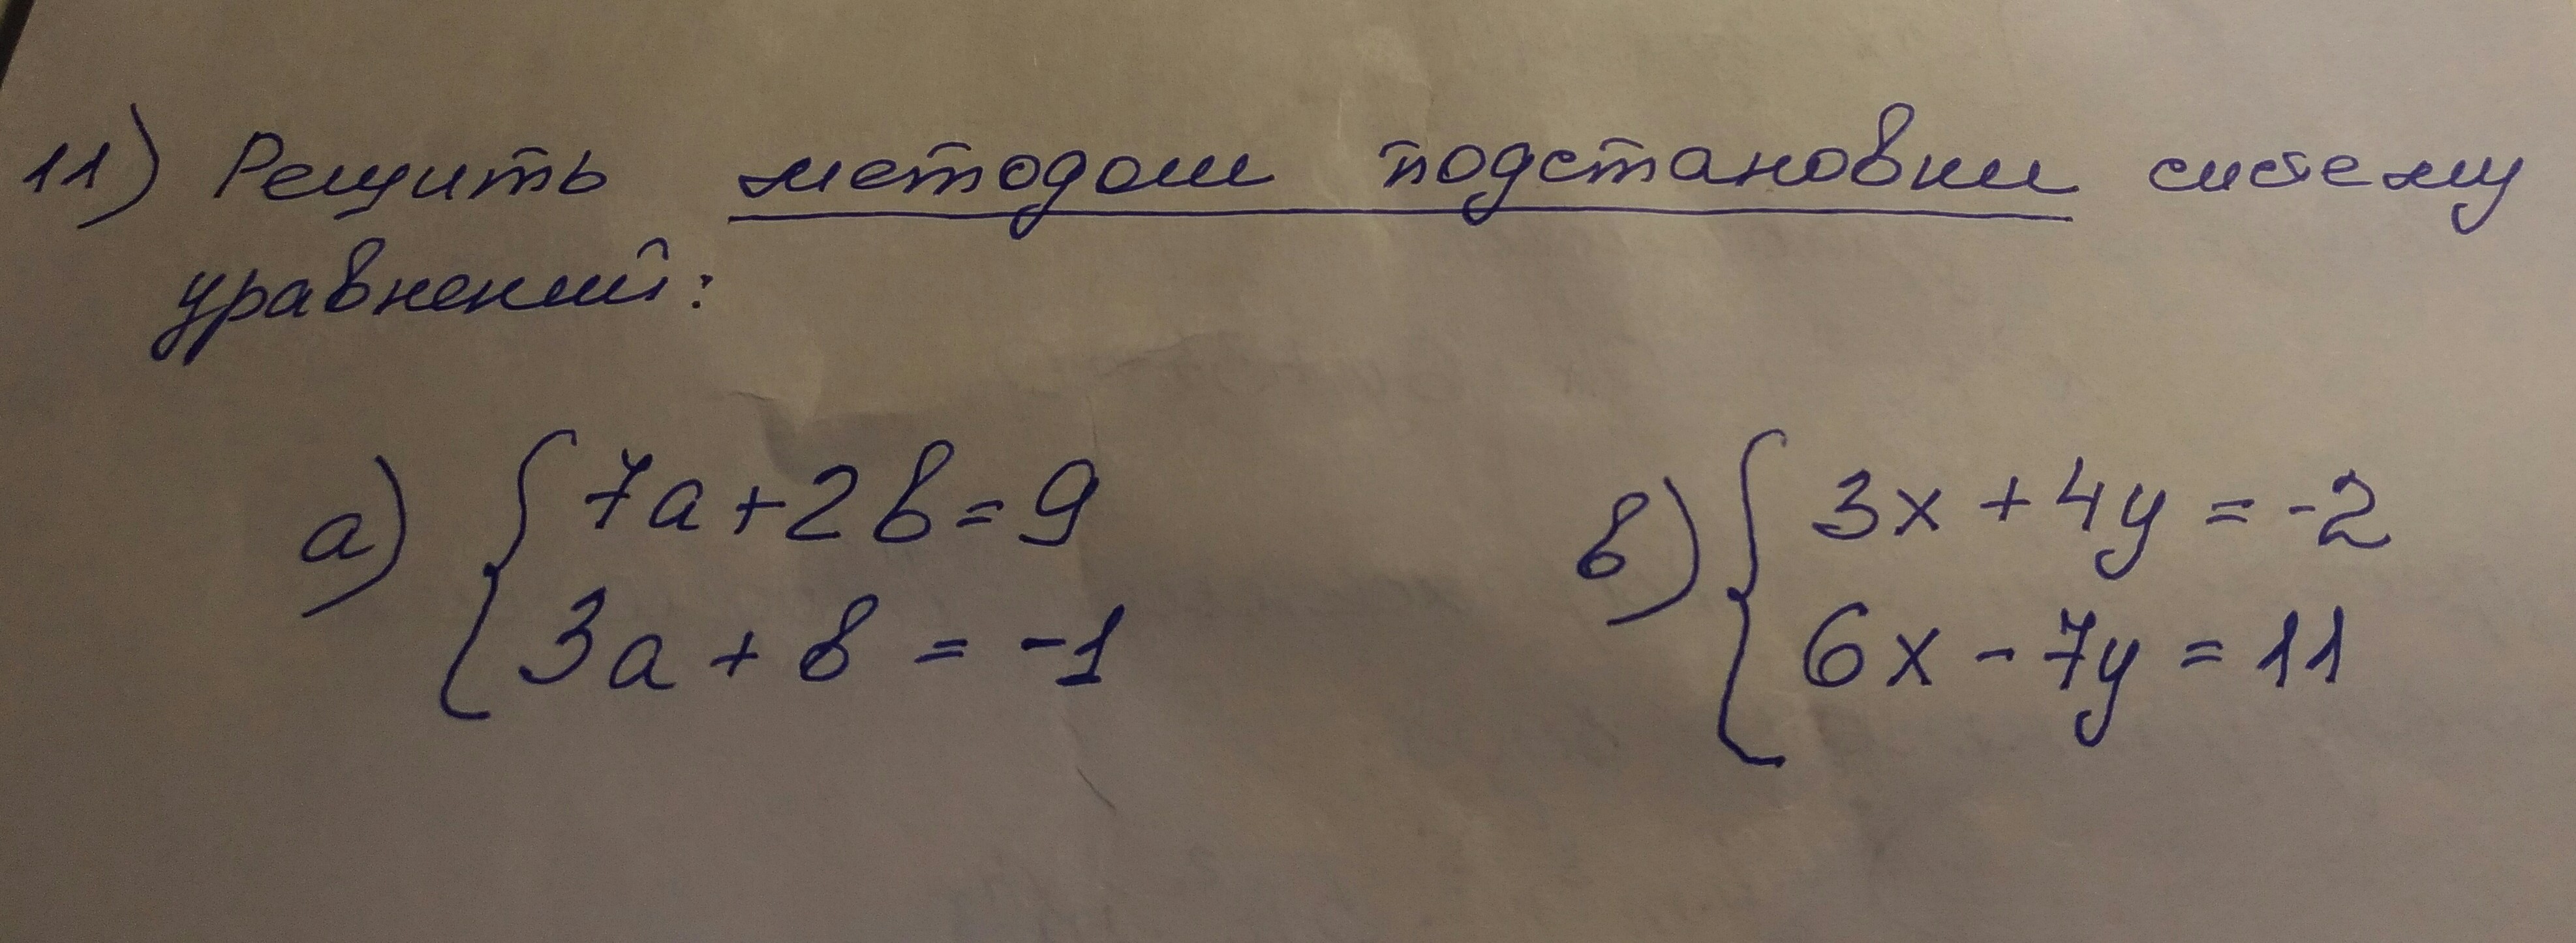 11) Решить методом подстановки систему
уравнений:
а) { 7a + 2b = 9
3a + b = -1
в) { 3x + 4y = -2
6x - 7y = 11